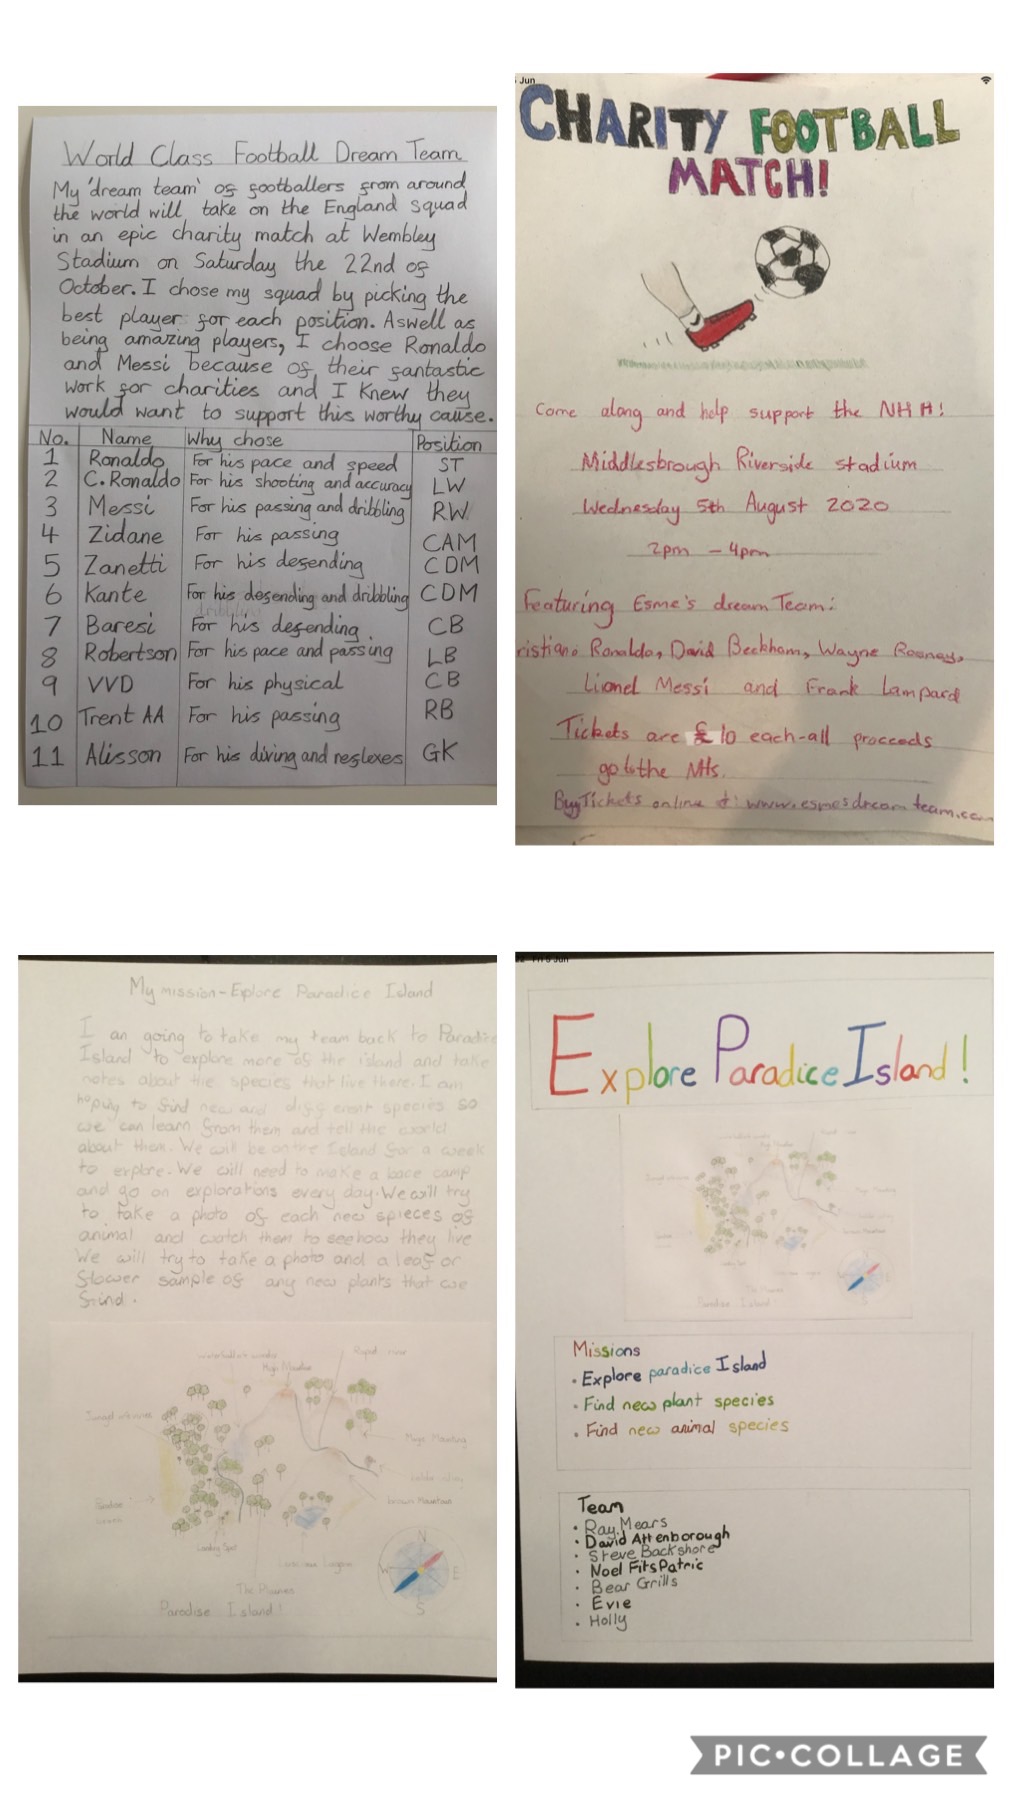 World Class Football Dream Team
My 'dream team' of footballers from around
the world will take on the England squad
in an epic charity match at Wembley
Stadium on Saturday the 22nd of
October. I chose my squad by picking the
best player for each position. Aswell as
being amazing players, I choose Ronaldo
and Messi because of their fantastic
work for charities and I Knew they
would want to support this worthy cause.
No. Name Why chose Position
1 Ronaldo For his pace and speed ST
2 C.Ronaldo For his shooting and accuracy LW
3 Messi For his passing and dribbling RW
4 Zidane For his passing CAM
5 Zanetti For his defending CDM
6 Kante For his defending and dribbling CDM
7 Baresi For his defending. CB
8 Robertson For his pace and passing LB
9 VVD For his physical CB
10 Trent AA For his passing RB
11 Alisson For his diving and reflexes GK
Jun
CHARITY FOOTBALL
MATCH!
Come along and help support the NHH!
Middlesbrough Riverside stadium
Wednesday 5th August 2020
2pm - 4pm
Featuring Esme's dream Team:
ristiano Ronaldo, David Beckham, Wayne Rooney,
Lionel Messi and Frank Lampard
Tickets are £10 each-all proceeds
go to the NHs.
Buy Tickets online at: www.esmesdreamteam.com
My mission-Explore Paradice Island
I an going to take my team back to Paradice
Island to explore more of the island and take
notes about the species that live there. I am
hoping to find new and different species so
we can learn from them and tell the world
about them. We will be on the Island for a week
to explore. We will need to make a bace camp
and go on explorations every day. We will try
to take a photo of each new spieces of
animal and watch them to see how they live
We will try to take a photo and a leaf or
flower sample of any new plants that we
find.
Rapid river
Huge Mountain
Brown Mountain
Landing Spot
Luscious Lagoon
N
W
E
S
Paradise Island!
Fri 5 Jun
Explore Paradice Island!
Paradise Island
Missions
• Explore paradice Island
• Find new plant species
• Find new animal species
Team
• Ray Mears
• David Attenborough
• Steve Backshore
• Noel FitsPatric
• Bear Grills
• Evie
• Holly
PIC•COLLAGE